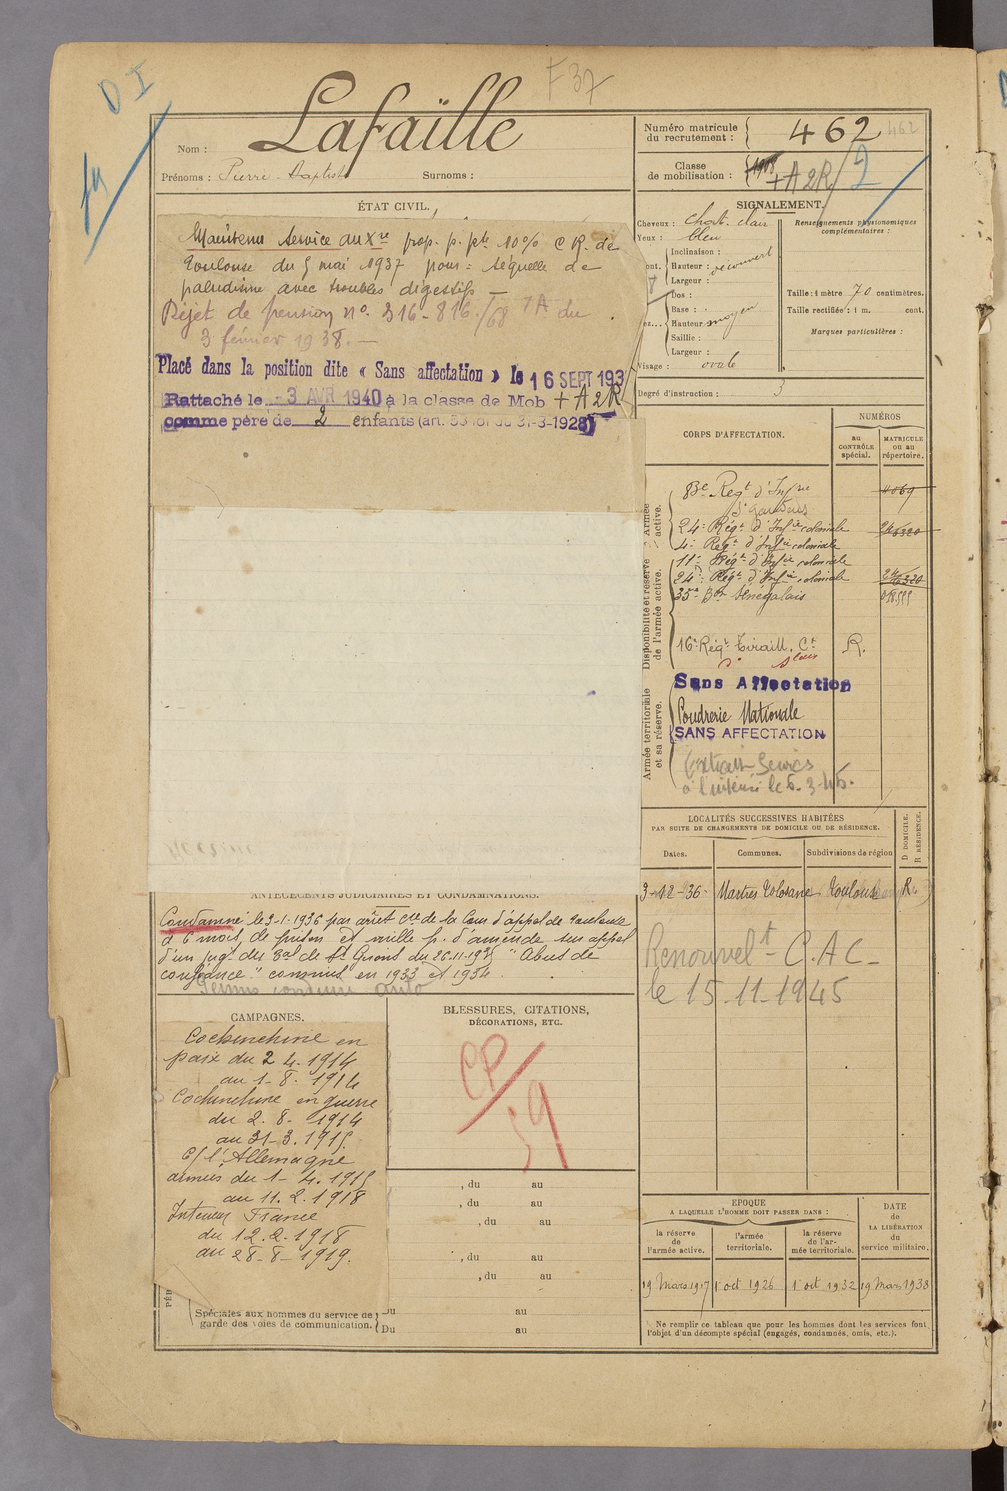 D I
F 37
Nom : Lafaille
Prénoms : Pierre-Baptiste Surnoms :
Numéro matricule du recrutement : 462
462
Classe de mobilisation : 1908 + A 2R / 2
ÉTAT CIVIL.
Maintenu Service aux^re prop. p. pte 10% C R. de
Toulouse du 5 mai 1937 pour : séquelle de
paludisme avec troubles digestifs —
Rejet de pension n°. 316-816/68 7A du
3 février 1938. —
Placé dans la position dite « Sans affectation » le 16 SEPT 193
Rattaché le -3 AVR 1940 à la classe de Mob + A 2R
comme père de 2 enfants (art. 58 loi du 31-3-1928)
SIGNALEMENT.
Cheveux : chat. clair
Yeux : bleu
Inclinaison :
Hauteur : découvert
Largeur :
Dos :
Base :
Hauteur moyen
Saillie :
Largeur :
Visage : ovale
Renseignements physionomiques
complémentaires :
Taille : 1 mètre 70 centimètres.
Taille rectifiée : 1 m. cent.
Marques particulières :
Degré d'instruction : 3
CORPS D'AFFECTATION.
NUMÉROS
au CONTRÔLE spécial.
MATRICULE ou au répertoire.
Armée active.
83e Régt d'Infrie 4069
St Gaudens
24e Régt d'Infie coloniale
4e Régt d'Infie coloniale
Disponibilité et réserve de l'armée active.
11e Régt d'Infie coloniale
24e Régt d'Infie coloniale
35e Bon Sénégalais
16e Régt Tiraill. R.
Armée territoriale et sa réserve.
Sans Affectation
Poudrerie Nationale
SANS AFFECTATION
LOCALITÉS SUCCESSIVES HABITÉES
PAR SUITE DE CHANGEMENTS DE DOMICILE OU DE RÉSIDENCE.
Dates. Communes. Subdivisions de région
D DOMICILE.
R RÉSIDENCE.
3-12-36- Martres Tolosane Toulouse R.
Renouvelt - C.A C -
le 15-11-1945
ANTÉCÉDENTS JUDICIAIRES ET CONDAMNATIONS.
Condamné le 9-1-1936 par arrêt cte de la Cour d'appel de Toulouse
à 6 mois de prison et mille f. d'amende sur appel
d'un jugt du Bal de St Girons du 26-11-1935 "Abus de
confiance" commis en 1933 et 1934.
CAMPAGNES.
Cochinchine en
paix du 2 4.1914
au 1-8.1914
Cochinchine en guerre
du 2.8.1914
au 31-3.1915.
C/ l'Allemagne
armées du 1-4.1915
au 11.2.1918
Intérieur France
du 12.2.1918
au 28-8-1919.
Spéciales aux hommes du service de
garde des voies de communication.
BLESSURES, CITATIONS,
DÉCORATIONS, ETC.
CP
59
, du au
, du au
, du au
, du au
, du au
Du au
Du au
EPOQUE
A LAQUELLE L'HOMME DOIT PASSER DANS :
la réserve de l'armée active.
l'armée territoriale.
la réserve de l'armée territoriale.
DATE de LA LIBÉRATION du service militaire.
19 Mars 1917 1 oct 1926 1 oct 1932 19 Mars 1938
Ne remplir ce tableau que pour les hommes dont les services font
l'objet d'un décompte spécial (engagés, condamnés, omis, etc.).